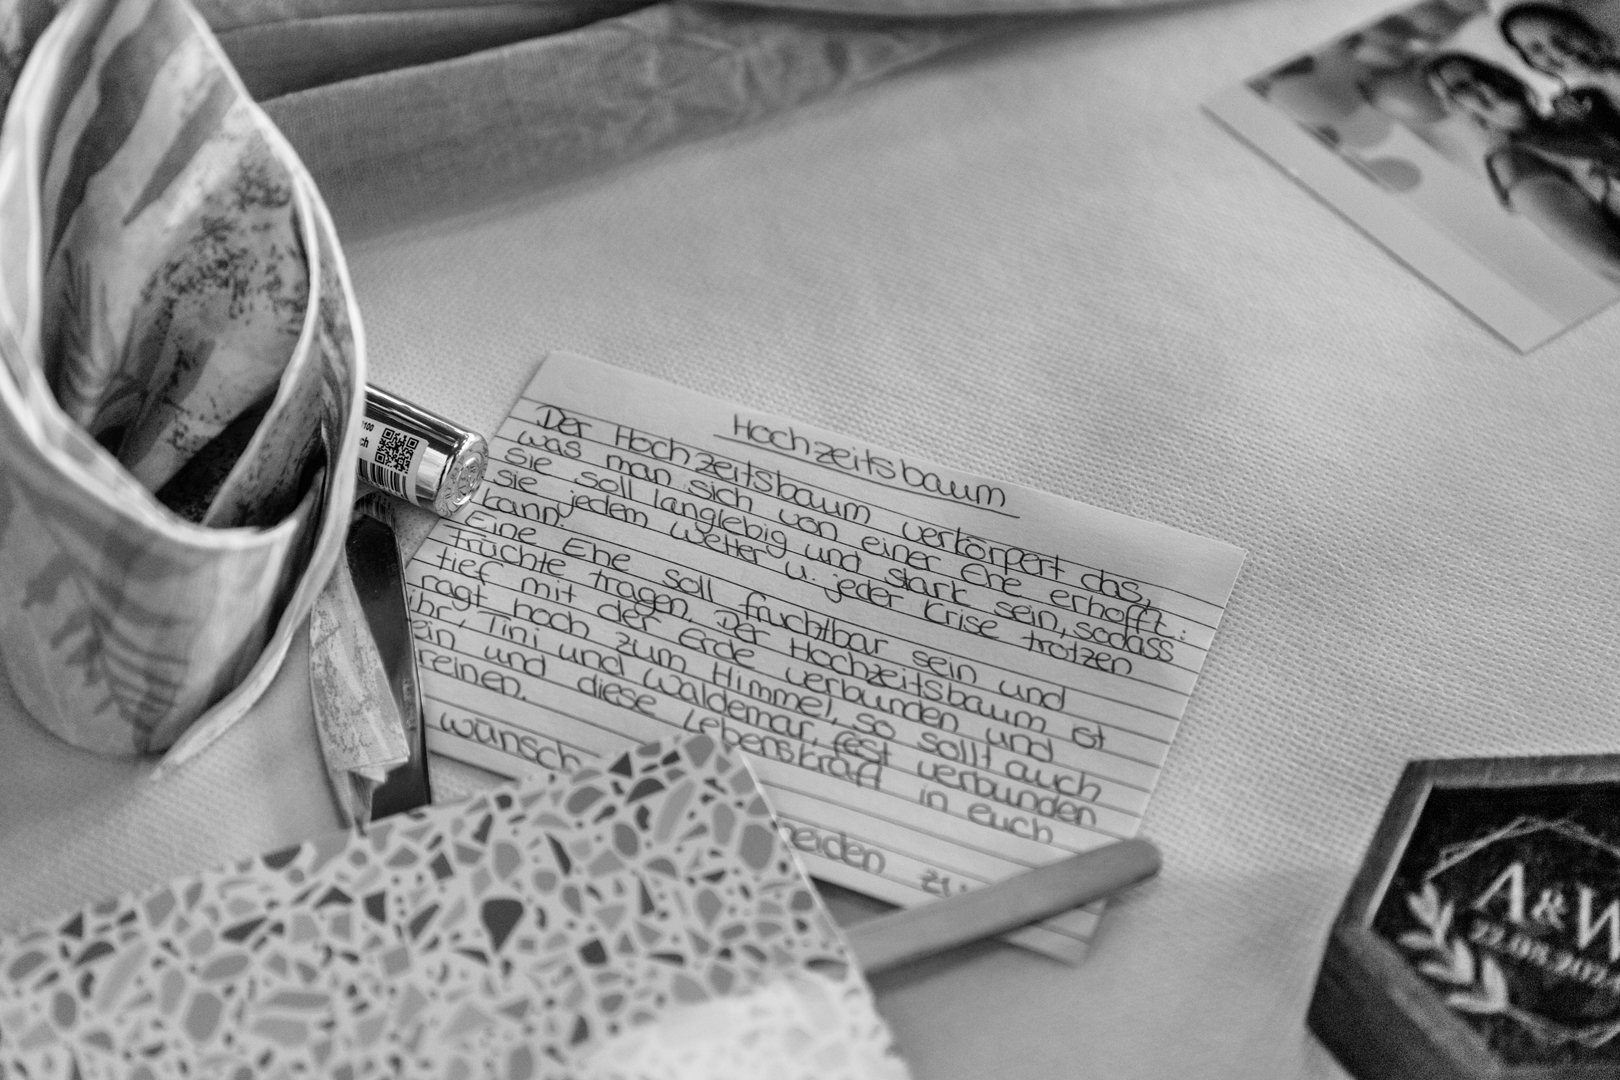 Hochzeitsbaum
Der Hochzeitsbaum verkörpert das,
was man sich von einer Ehe erhofft:
sie soll langlebig und stark sein, sodass
sie jedem Wetter u. jeder Krise trotzen
kann.
Eine Ehe soll fruchtbar sein und
Früchte tragen. Der Hochzeitsbaum ist
tief mit der Erde verbunden und
ragt hoch zum Himmel, so sollt auch
ihr, Tini und Waldemar, fest verbunden
ein und diese Lebenskraft in euch
reinen.
wünsch
A&W